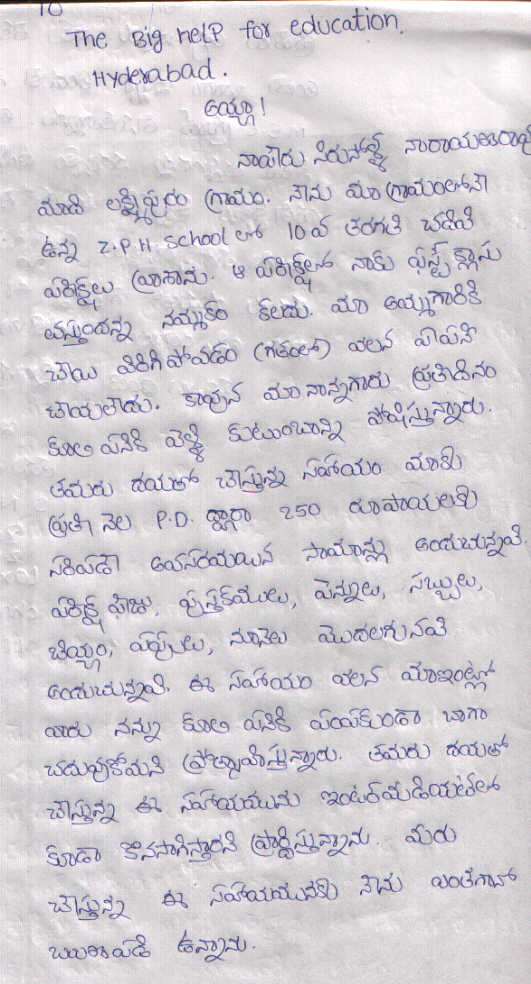 To
The Big help for education.
Hyderabad.
అయ్యా!
నాపేరు సిరుసోళ్ళ నారాయణరావు
మాది లక్ష్మీపురం గ్రామం. నేను మా గ్రామంలోనే
ఉన్న Z.P.H. School లో 10వ తరగతి చదివి
పరీక్షలు వ్రాశాను. ఆ పరీక్షల్లో నాకు ఫస్ట్ క్లాసు
వస్తుందన్న నమ్మకం కలదు. మా అమ్మగారికి
చేయి విరిగి పోవడం (గతంలో) వలన ఏ పని
చేయలేదు. కావున మా నాన్నగారు ప్రతిదినం
కూలి పనికి వెళ్ళి కుటుంబాన్ని పోషిస్తున్నారు.
తమరు దయతో చేస్తున్న సహాయం మాకు
ప్రతి నెల P.D. ద్వారా 250 రూపాయలకు
సరిపడే అవసరమయిన సామాన్లు అందుచున్నవి.
పరీక్ష ఫీజు, పుస్తకములు, పెన్నులు, సబ్బులు,
బియ్యం, పప్పులు, నూనెలు మొదలగునవి
అందుచున్నవి. ఈ సహాయం వలన మాఇంట్లో
వారు నన్ను కూలి పనికి పంపకుండా బాగా
చదువుకోమని ప్రోత్సాహిస్తున్నారు. తమరు దయతో
చేస్తున్న ఈ సహాయమును ఇంటర్‌మీడియట్‌లో
కూడా కొనసాగిస్తారని ప్రార్థిస్తున్నాను. మీరు
చేస్తున్న ఈ సహాయమునకు నేను ఎంతగానో
ఋణపడి ఉన్నాను.